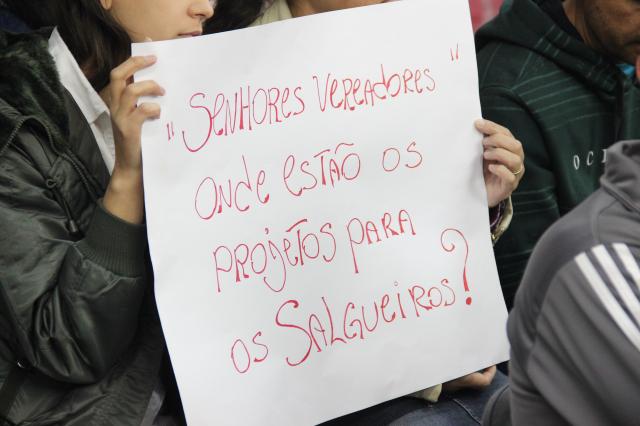 "SENHORES VEREADORES"
ONDE ESTÃO OS
PROJETOS PARA
OS SALGUEIROS?